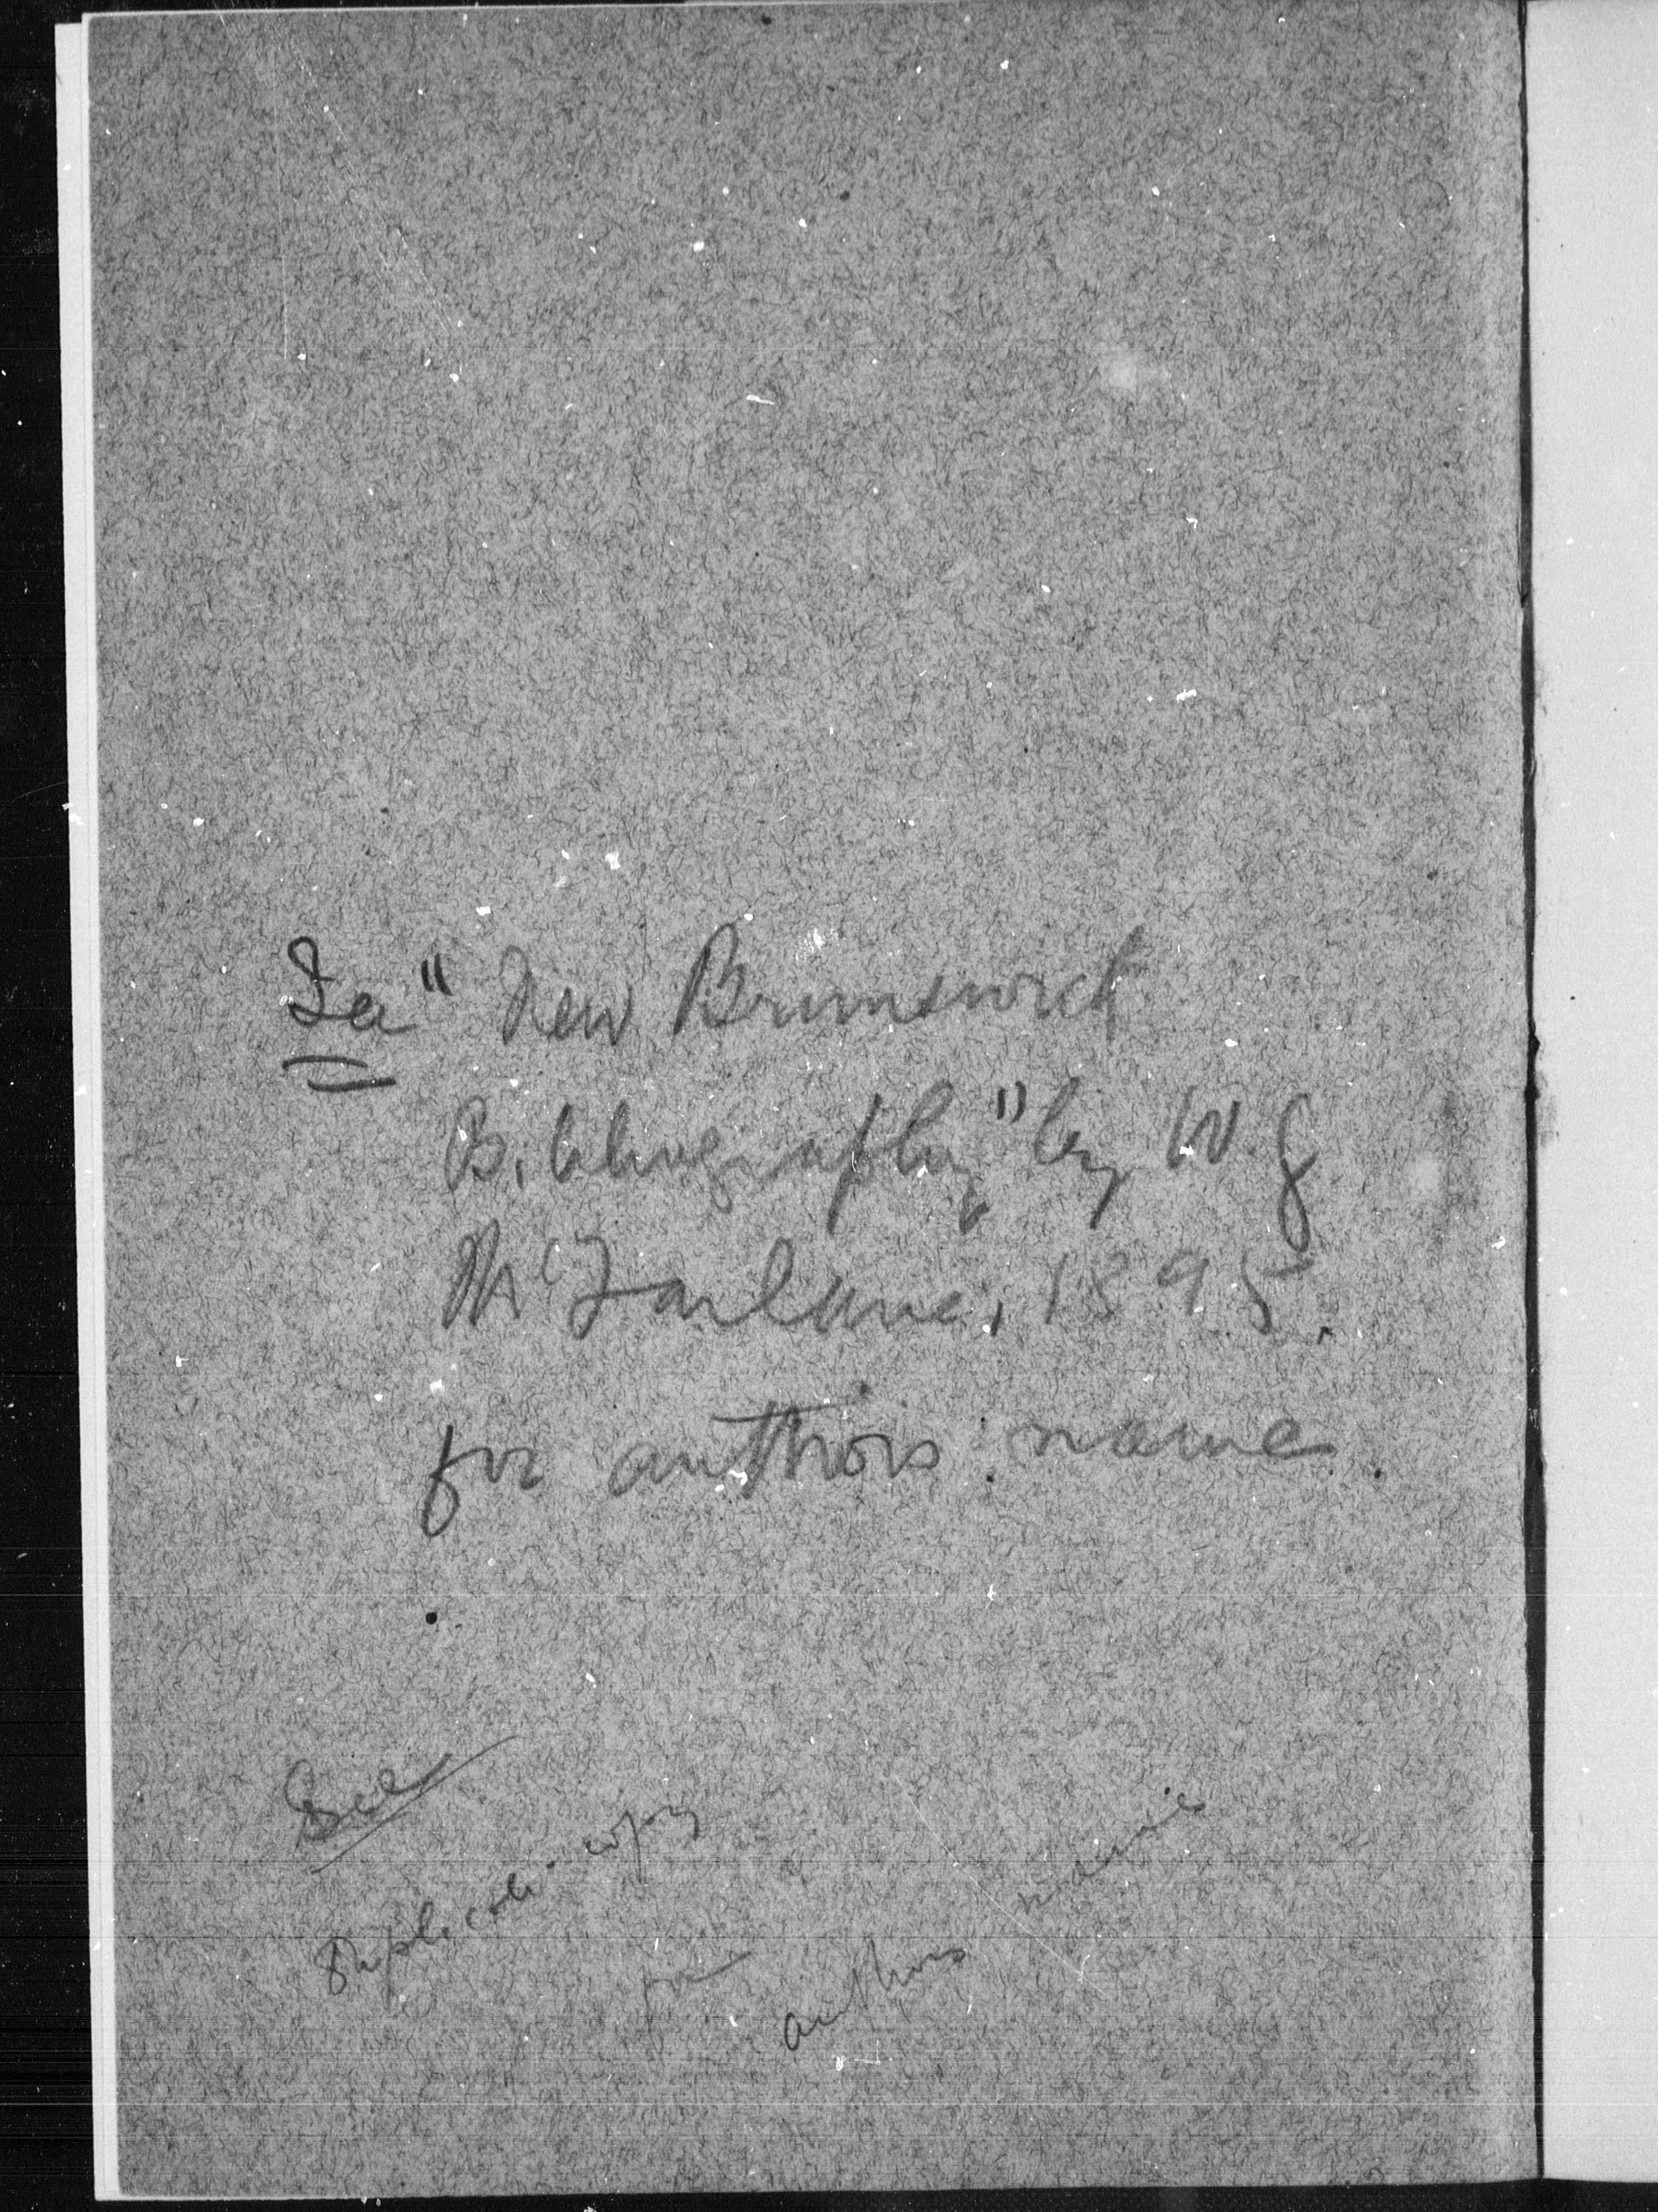 See "New Brunswick
Bibliography" by W. G
McFarlane, 1895.
for authors name.
See
Duplicate copy
for
authors
name